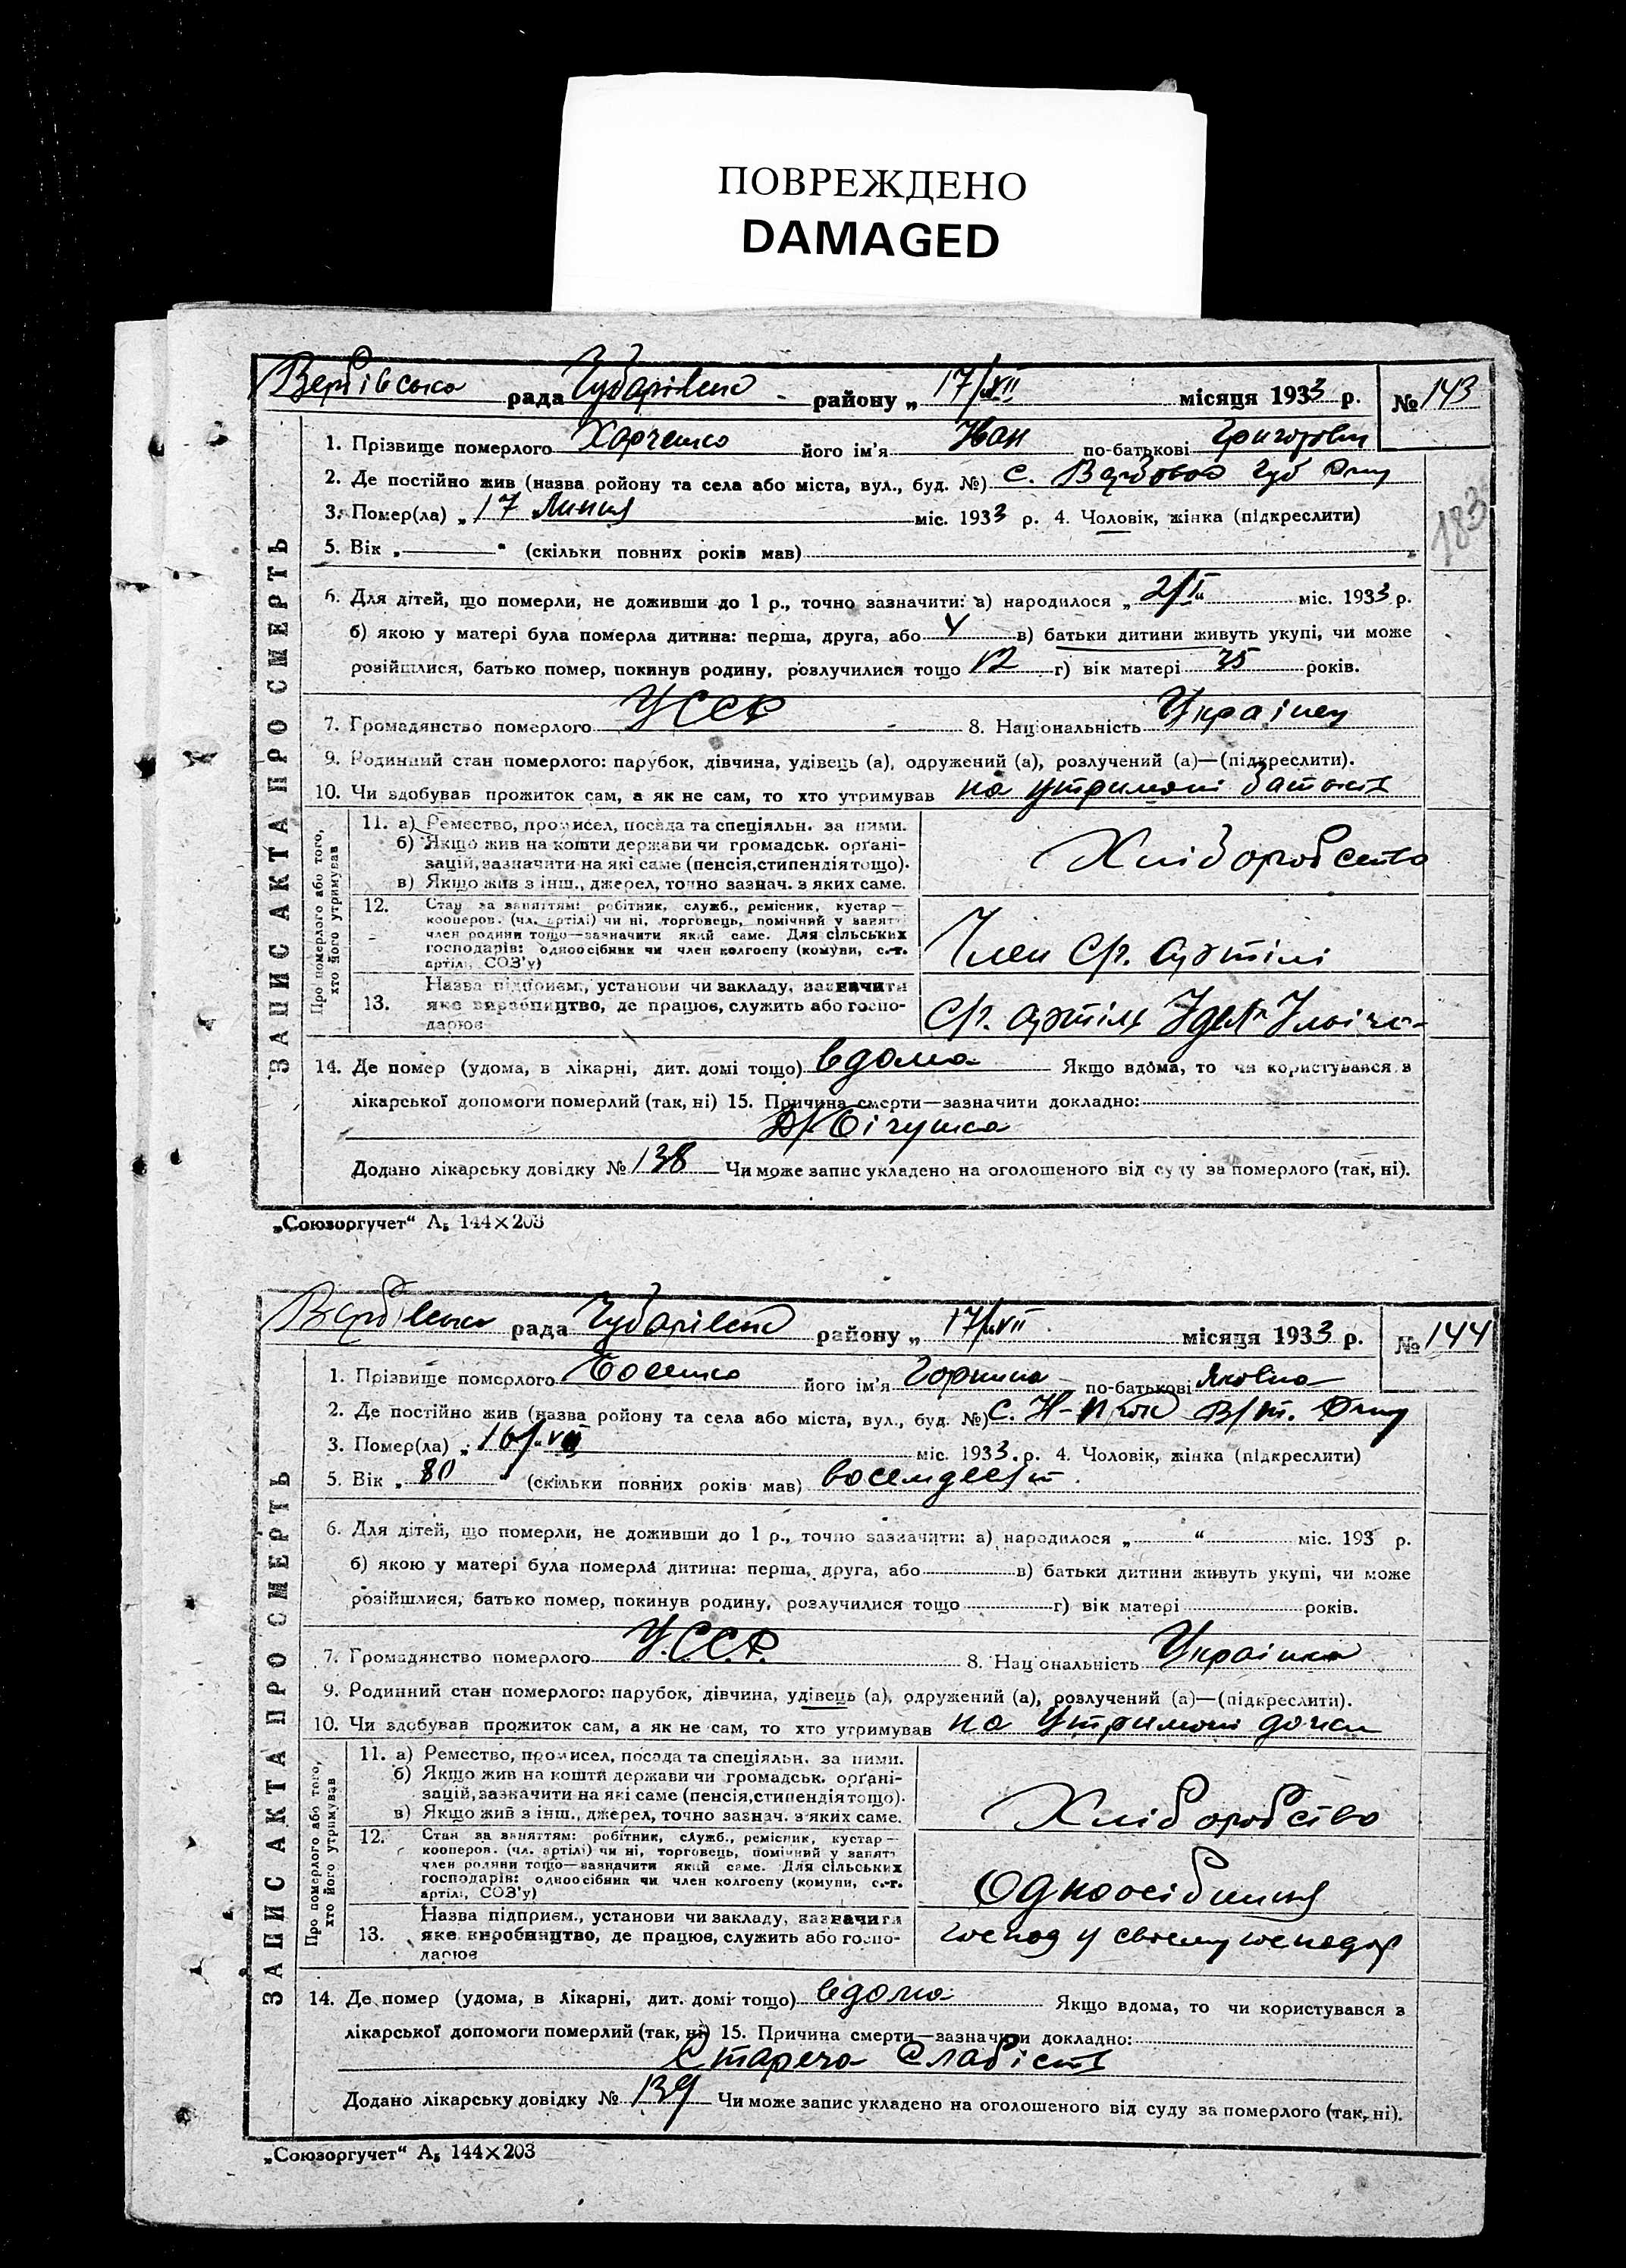 ПОВРЕЖДЕНО
DAMAGED
Вербівська рада Чубарівськ району „ 17/VII місяця 1933 р. № 143
1. Прізвище померлого Харченко його ім'я Иван по-батькові Григорович
2. Де постійно жив (назва ройону та села або міста, вул., буд. №) с. Вербовое Чуб
183
3. Помер(ла) „ 17 Липня міс. 1933 р. 4. Чоловік, жінка (підкреслити)
5. Вік „ “ (скільки повних років мав)
6. Для дітей, що померли, не доживши до 1 р., точно зазначити: а) народилося „ 2/I “ міс. 1933 р.
б) якою у матері була померла дитина: перша, друга, або 4 в) батьки дитини живуть укупі, чи може
розійшлися, батько помер, покинув родину, розлучилися тощо 12 г) вік матері 35 років.
7. Громадянство померлого УССР 8. Національність Украінец
9. Родинний стан померлого: парубок, дівчина, удівець (а), одружений (а), розлучений (а)—(підкреслити).
10. Чи здобував прожиток сам, а як не сам, то хто утримував на утримані батька
ЗАПИС АКТА ПРО СМЕРТЬ
Про померлого або того,
хто його утримував
11. а) Ремество, промисел, посада та спеціяльн. за ними.
б) Якщо жив на кошти держави чи громадськ. органі-
зацій, зазначити на які саме (пенсія, стипендія тощо).
в) Якщо жив з інш., джерел, точно зазнач. з яких саме.
Хліборобство
12. Стан за заняттям: робітник, служб., ремісник, кустар—
кооперов. (чл. артілі) чи ні, торговець, помічний у занятт
член родини тощо—зазначити який саме. Для сільських
господарів: одноосібник чи член колгоспу (комуни, с.-г.
артілі, СОЗ'у)
Член С/г. артілі
13. Назва підприєм., установи чи закладу, зазначити
яке виробництво, де працює, служить або госпо-
дарює
С/г. артіль Ідея Ільіча
14. Де помер (удома, в лікарні, дит. домі тощо) вдома Якщо вдома, то чи користувався з
лікарської допомоги померлий (так, ні) 15. Причина смерти—зазначити докладно:
Додано лікарську довідку № 138 Чи може запис укладено на оголошеного від суду за померлого (так, ні).
„Союзоргучет“ А₅ 144×203
Вербівська рада Чубарівськ району „ 17/VII місяця 1933 р. № 144
1. Прізвище померлого його ім'я Горпина по-батькові Яковна
2. Де постійно жив (назва ройону та села або міста, вул., буд. №) с.
3. Помер(ла) „ 16/VII міс. 1933 р. 4. Чоловік, жінка (підкреслити)
5. Вік „ 80 “ (скільки повних років мав) восемдесят
6. Для дітей, що померли, не доживши до 1 р., точно зазначити: а) народилося „ “ міс. 193 р.
б) якою у матері була померла дитина: перша, друга, або в) батьки дитини живуть укупі, чи може
розійшлися, батько помер, покинув родину, розлучилися тощо г) вік матері років.
7. Громадянство померлого У.С.С.Р. 8. Національність Украінка
9. Родинний стан померлого: парубок, дівчина, удівець (а), одружений (а), розлучений (а)—(підкреслити).
10. Чи здобував прожиток сам, а як не сам, то хто утримував на утримані дочки
ЗАПИС АКТА ПРО СМЕРТЬ
Про померлого або того,
хто його утримував
11. а) Ремество, промисел, посада та спеціяльн. за ними.
б) Якщо жив на кошти держави чи громадськ. органі-
зацій, зазначити на які саме (пенсія, стипендія тощо).
в) Якщо жив з інш., джерел, точно зазнач. з яких саме.
Хліборобство
12. Стан за заняттям: робітник, служб., ремісник, кустар—
кооперов. (чл. артілі) чи ні, торговець, помічний у занятт
член родини тощо—зазначити який саме. Для сільських
господарів: одноосібник чи член колгоспу (комуни, с.-г.
артілі, СОЗ'у)
Одноосібниця
13. Назва підприєм., установи чи закладу, зазначити
яке виробництво, де працює, служить або госпо-
дарює
господ у своему господар
14. Де помер (удома, в лікарні, дит. домі тощо) вдома Якщо вдома, то чи користувався з
лікарської допомоги померлий (так, ні) 15. Причина смерти—зазначити докладно:
Стареча Слабість
Додано лікарську довідку № 139 Чи може запис укладено на оголошеного від суду за померлого (так, ні).
„Союзоргучет“ А₅ 144×203